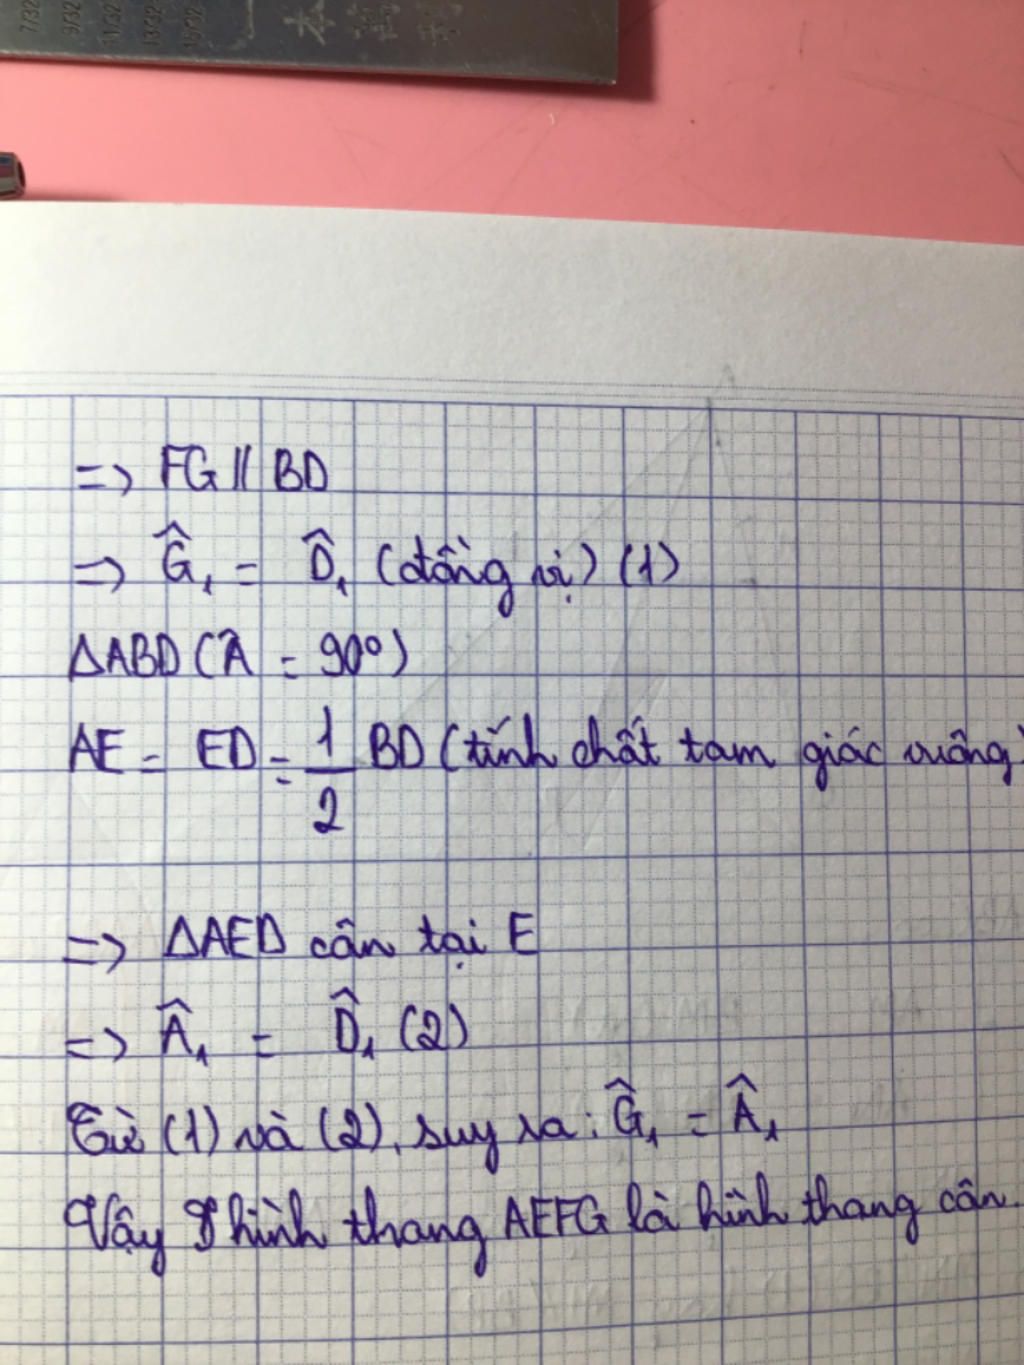 7/32 9/32 11/32 13/32 15/32
本
=> FG // BD
=> Ĝ₁ = D̂₁ (đồng vị) (1)
ΔABD (Â = 90°)
AE = ED = 1/2 BD (tính chất tam giác vuông)
=> ΔAED cân tại E
=> Â₁ = D̂₁ (2)
Từ (1) và (2), suy ra: Ĝ₁ = Â₁
Vậy hình thang AEFG là hình thang cân.